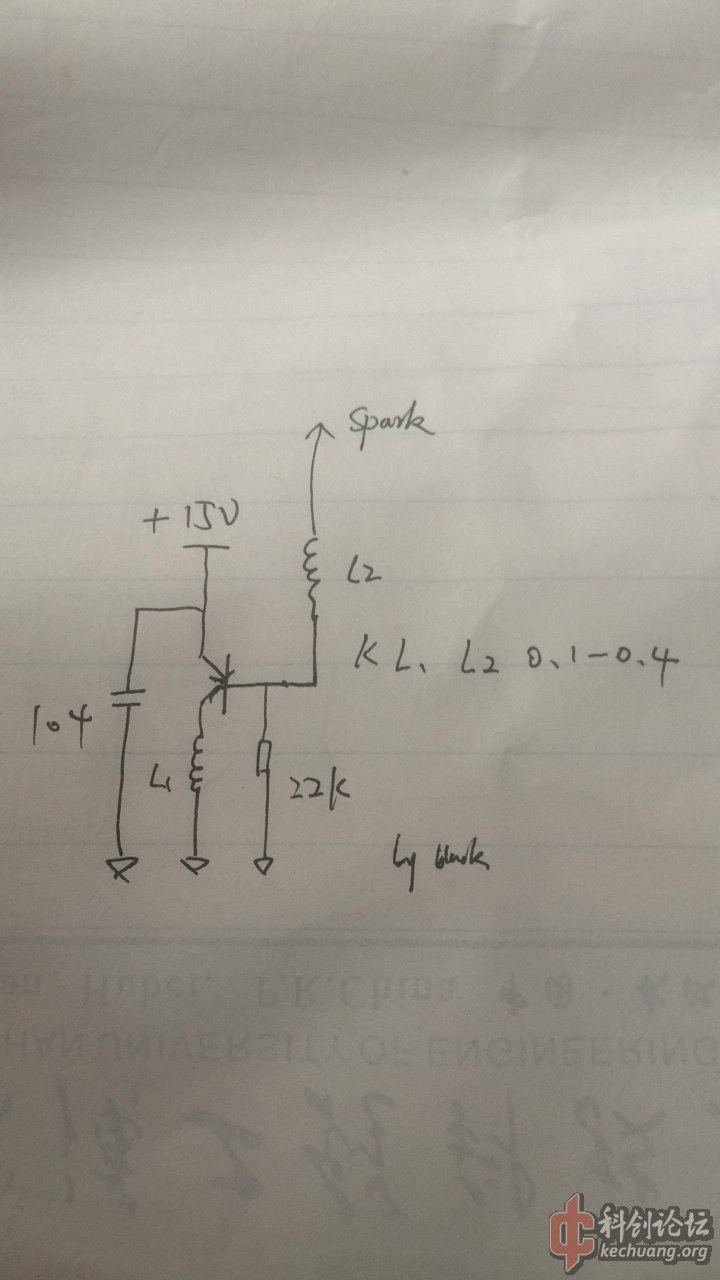 Spark
+15V
L2
K L1 L2 0.1-0.4
104
L1
22K
by
an Hubei, P.R.China 中国·武汉
HAN UNIVERSITY OF ENGINEERING
科创论坛
kechuang.org